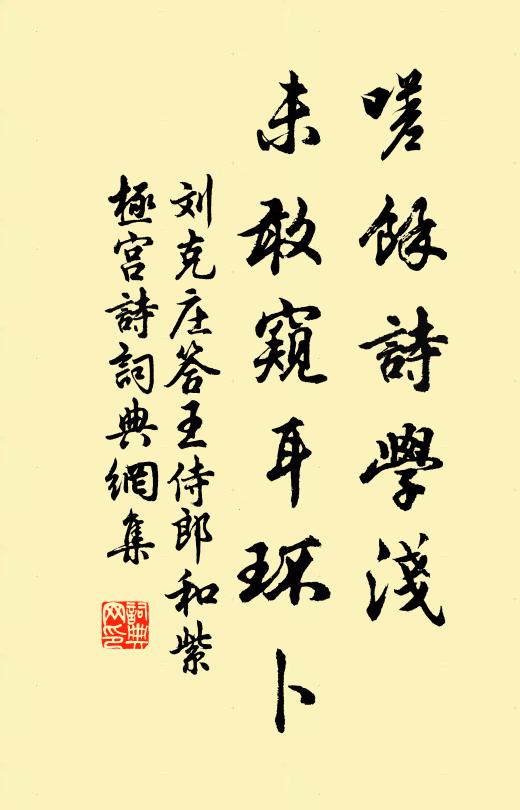 嗟餘詩學淺
未敢窺耳环卜
刘克庄答王侍郎和紫
極宮詩詞典網集
詞典
网印